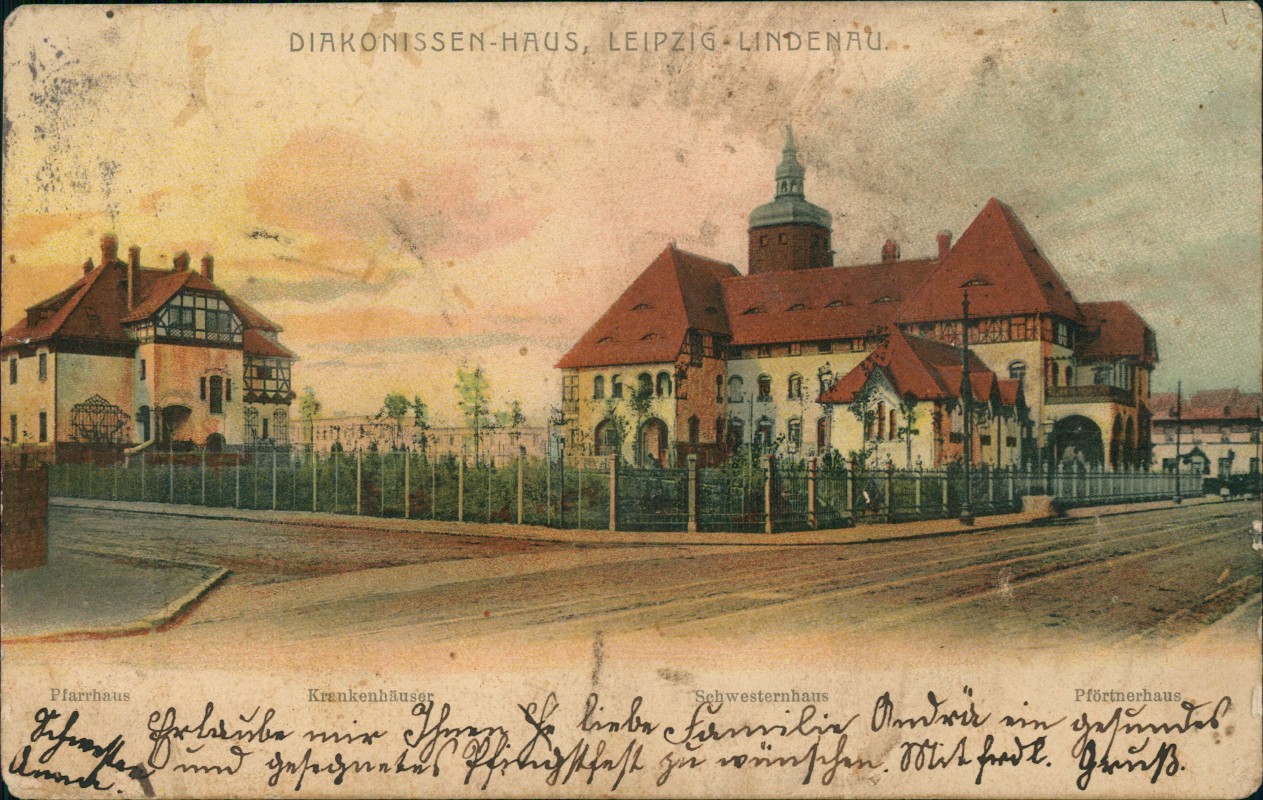 DIAKONISSEN-HAUS, LEIPZIG-LINDENAU.
Pfarrhaus Krankenhäuser Schwesternhaus Pförtnerhaus
Erlaube mir Ihnen liebe Familie Andrä ein gesundes
und gesegnetes Pfingstfest zu wünschen. Mit frdl. Gruß.
Schwester
Anna.